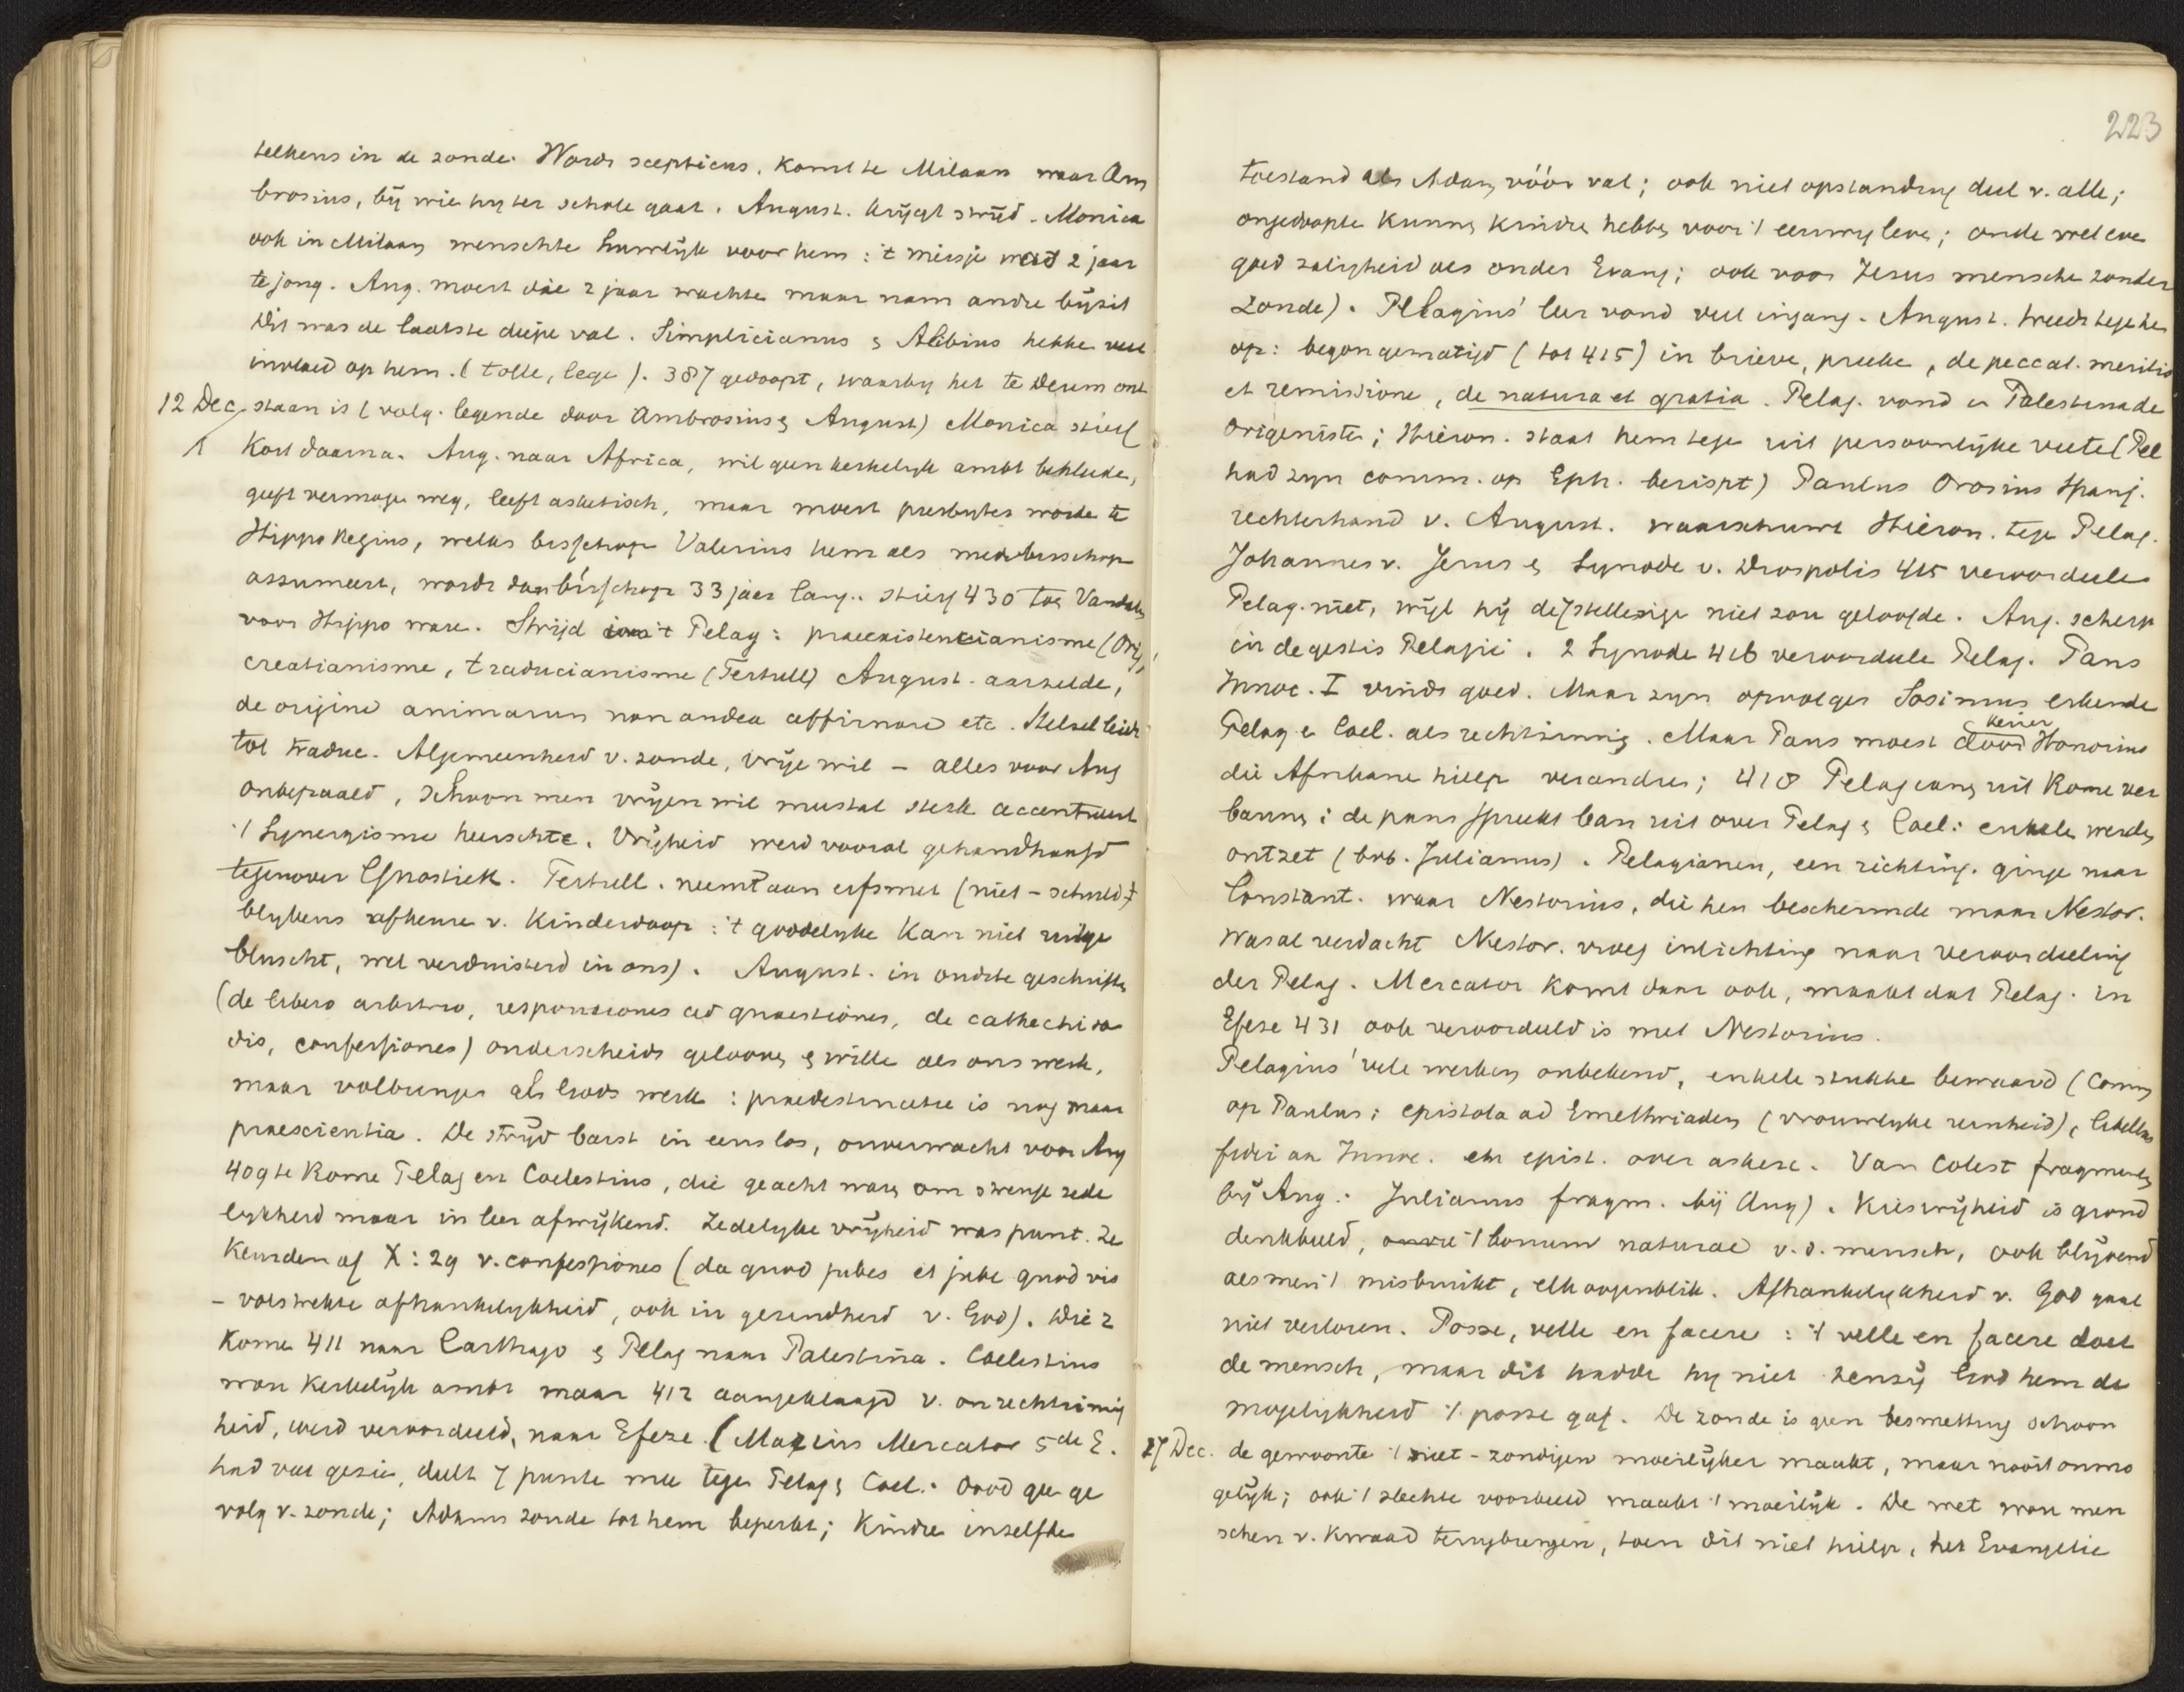 telkens in de zonde. Wordt scepticus. Komt te Milaan waar Am
brosius, bij wie hy ter schole gaat. August. krijgt strijd. Monica
ook in Milaan wenschte huwelijk voor hem: 't meisje was 2 jaar
te jong. Aug. moest die 2 jaar wachte maar nam andre bijzit
Dit was de laatste diepe val. Simplicianus & Alibius hebbe veel
invloed op hem. (tolle, lege). 387 gedoopt, waarby het te Deum ont
12 Dec. staan is (volg. legende door Ambrosius & August) Monica stierf
kort daarna. Aug. naar Africa, wil geen kerkelyk ambt bekleede,
geeft vermoge weg, leeft asketisch, maar moest presbyter worde te
Hippo Regius, welks bisschop Valerius hem als medebisschop
assumeert, wordt dan bisschop 33 jaar lang. stierf 430 toe Vandale
voor Hippo ware. Strijd 't Pelag: praeexistencianisme (Orig)
creatianisme, traducianisme (Tertull) August. aarzelde,
de origine animarum non audeo affirmare etc. Stelsel leidt
tot traduc. Algemeenheid v. zonde, vrije wil – alles voor Aug
onbepaald, schoon men vrijen wil meestal sterk accentueert
't Synergisme heerschte. Vrijheid werd vooral gehandhaafd
tegenover Gnostiek. Tertull. neemt aan erfsmet (niet – schuld,
blykens afkeure v. Kinderdoop: 't goddelyke kan niet uitge
bluscht, wel verduisterd in ons). August. in oudste geschrifte
(de libero arbitrio, responsiones ad quaestiones, de cathechisa
dis, confessiones) onderscheidt geloove & wille als ons werk,
maar volbrenge als Gods werk: praedestinatie is nog maar
praescientia. De strijd barst in eens los, onverwacht voor Aug
409 te Rome Pelag en Coelestius, die geacht ware om strenge zede
lykheid maar in leer afwijkend. Zedelyke vrijheid was punt. Ze
keurden af X: 29 v. confessiones (da quod jubes et jube quod vis
– volstrekte afhankelykheid, ook in gezindheid v. God). Die 2
kome 411 naar Carthago & Pelag naar Palestina. Coelestius
wou kerkelijk ambt maar 412 aangeklaagd v. onrechtzinnig
heid, werd veroordeeld, naar Efeze. (Marius Mercator 5de E.
had veel gezie, deelt 7 punte mee tege Pelag & Coel.: dood gee ge
volg v. zonde; Adams zonde tot hem beperkt; Kindre in zelfde
223
toestand als Adam vóór val; ook niet opstanding deel v. alle;
ongedoopte kunne kindre hebbe voor 't eeuwig leve; onde wet eve
goed zaligheid als onder Evang; ook voor Jesus mensche zonder
zonde). Pelagius' leer vond veel ingang. August. treedt tege he
op: begon gematigd (tot 415) in brieve, preeke, de peccat. meritis
et remissione, de natura et gratia. Pelag. vond in Palestina de
Origeniste; Hieron. staat hem tege uit persoonlijke veete (Pel
had zyn comm. op Eph. berispt) Paulus Orosius Spanj.
rechterhand v. August. waarschuwt Hieron. tege Pelag.
Johannes v. Jerus & Synode v. Diospolis 415 veroordeele
Pelag. niet, wijl hij de stellinge niet zou geloofde. Aug. scherp
in de gestis Pelagii. 2 Synode 416 veroordeele Pelag. Paus
Innoc. I vindt goed. Maar zyn opvolger Sosimus erkende
Pelag & Coel. als rechtzinnig. Maar Paus moest door keizer Honorius
die Afrikane hielp verandre; 418 Pelagiane uit Rome ver
banne; de paus spreekt ban uit over Pelag & Coel: enkele werde
ontzet (bvb. Julianus). Pelagianen, een richting. ginge naar
Constant. waar Nestorius, die hen beschermde maar Nestor.
was al verdacht Nestor. vroeg inlichting naar veroordeeling
der Pelag. Mercator komt daar ook, maakt dat Pelag. in
Efeze 431 ook veroordeeld is met Nestorius.
Pelagius' vele werken onbekend, enkele stukke bewaard (Comm
op Paulus; epistola ad Emethriadem (vrouwelyke reinheid), libellus
fidei aan Innoc. en epist. over askese. Van Colest fragmente
bij Aug. Julianus fragm. bij Aug). Kiesvrijheid is grond
denkbeeld, 't bonum naturae v. d. mensch, ook blijvend
als men 't misbruikt, elk oogenblik. Afhankelykheid v. God gaat
niet verloren. Posse, velle en facere: 't velle en facere doet
de mensch, maar dit hadde hy niet tenzij God hem de
mogelykheid 't posse gaf. De zonde is geen besmetting schoon
27 Dec. de gewoonte 't niet-zondigen moeilijker maakt, maar nooit onmo
gelijk; ook 't slechte voorbeeld maakt 't moeilijk. De wet wou men
schen v. kwaad terugbrengen, toen dit niet hielp, het Evangelie